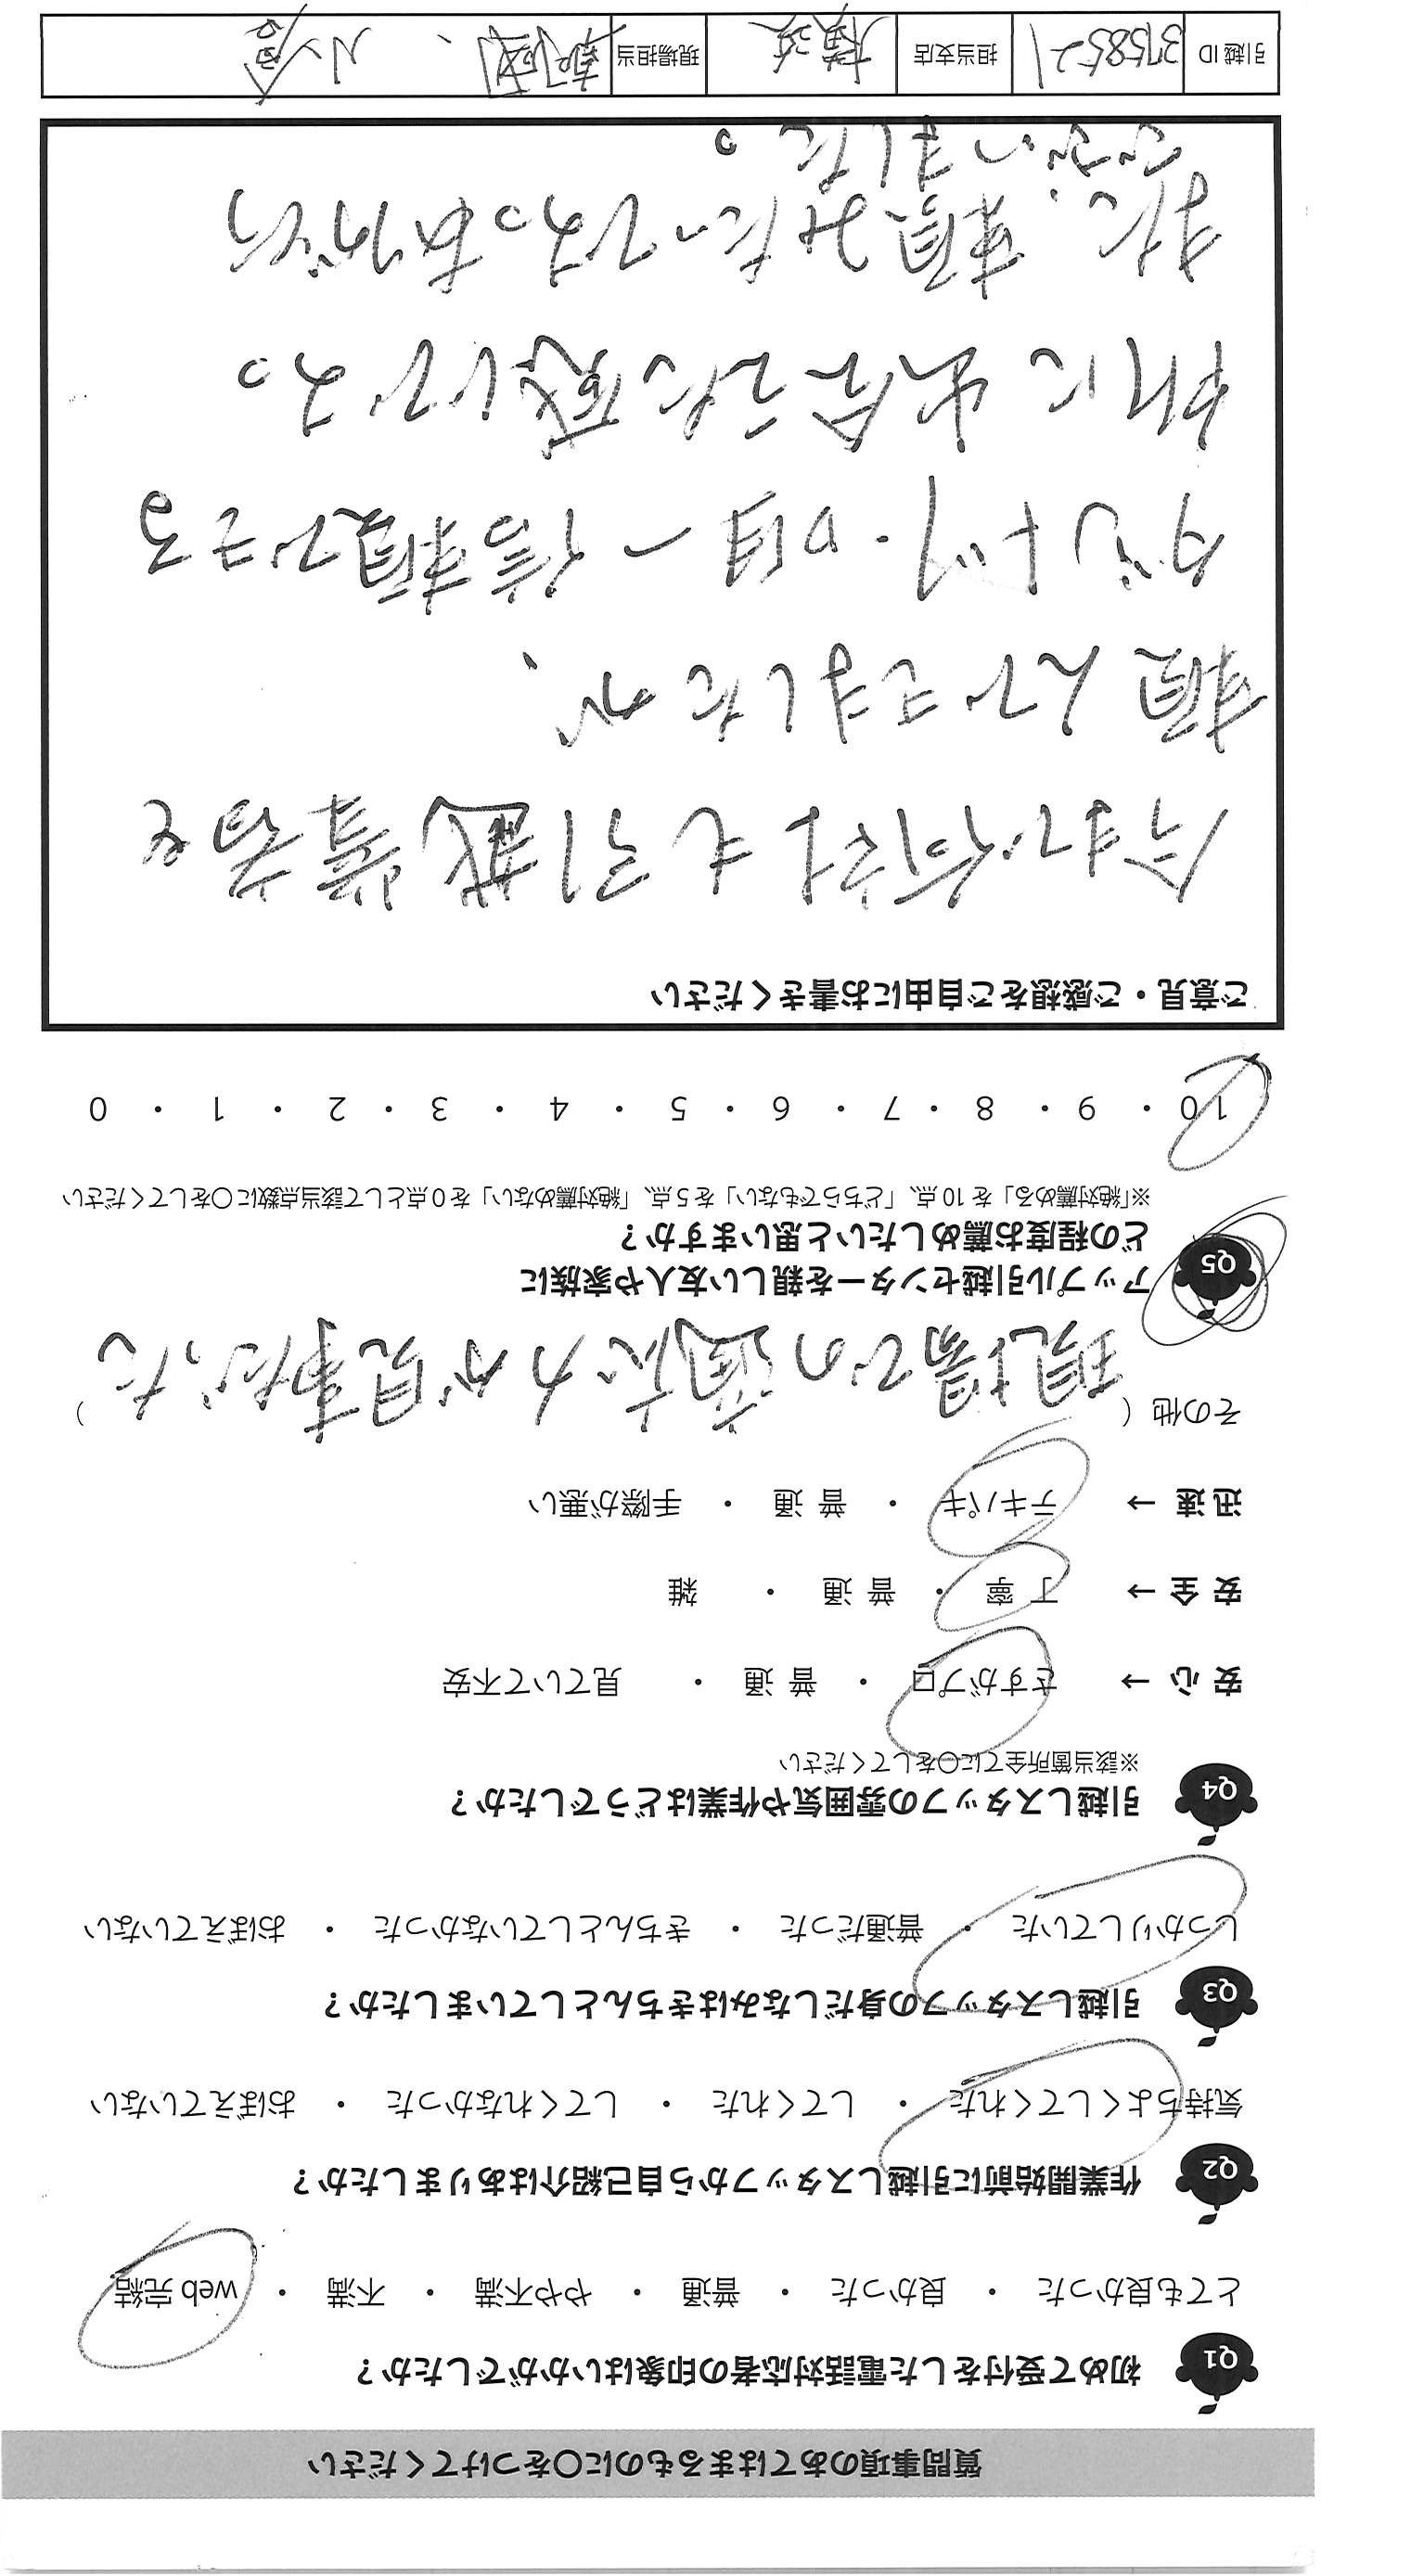 質問事項のあてはまるものに〇をつけてください
Q1 初めて受付をした電話対応者の印象はいかがでしたか？
とても良かった ・ 良かった ・ 普通 ・ やや不満 ・ 不満 ・ web 完結
Q2 作業開始前に引越しスタッフから自己紹介はありましたか？
気持ちよくしてくれた ・ してくれた ・ してくれなかった ・ おぼえていない
Q3 引越しスタッフの身だしなみはきちんとしていましたか？
しっかりしていた ・ 普通だった ・ きちんとしていなかった ・ おぼえていない
Q4 引越しスタッフの雰囲気や作業はどうでしたか？
※該当箇所全てに〇をしてください
安心 → さすがプロ ・ 普通 ・ 見ていて不安
安全 → 丁寧 ・ 普通 ・ 雑
迅速 → テキパキ ・ 普通 ・ 手際が悪い
その他（ 現場での適応力が見事だった ）
Q5 アップル引越センターを親しい友人や家族に
どの程度お薦めしたいと思いますか？
※「絶対薦める」を 10 点、「どちらでもない」を 5 点、「絶対薦めない」を 0 点として該当点数に〇をしてください
10 ・ 9 ・ 8 ・ 7 ・ 6 ・ 5 ・ 4 ・ 3 ・ 2 ・ 1 ・ 0
ご意見・ご感想をご自由にお書きください
今まで何社も引越業者を
頼んできましたが、
ダントツ・No1 信頼できる
所に出会えた感じです。
また、頼みたいです。ありがとう
ございました。
引越 ID 3758521 担当支店 横浜 現場担当 、小倉